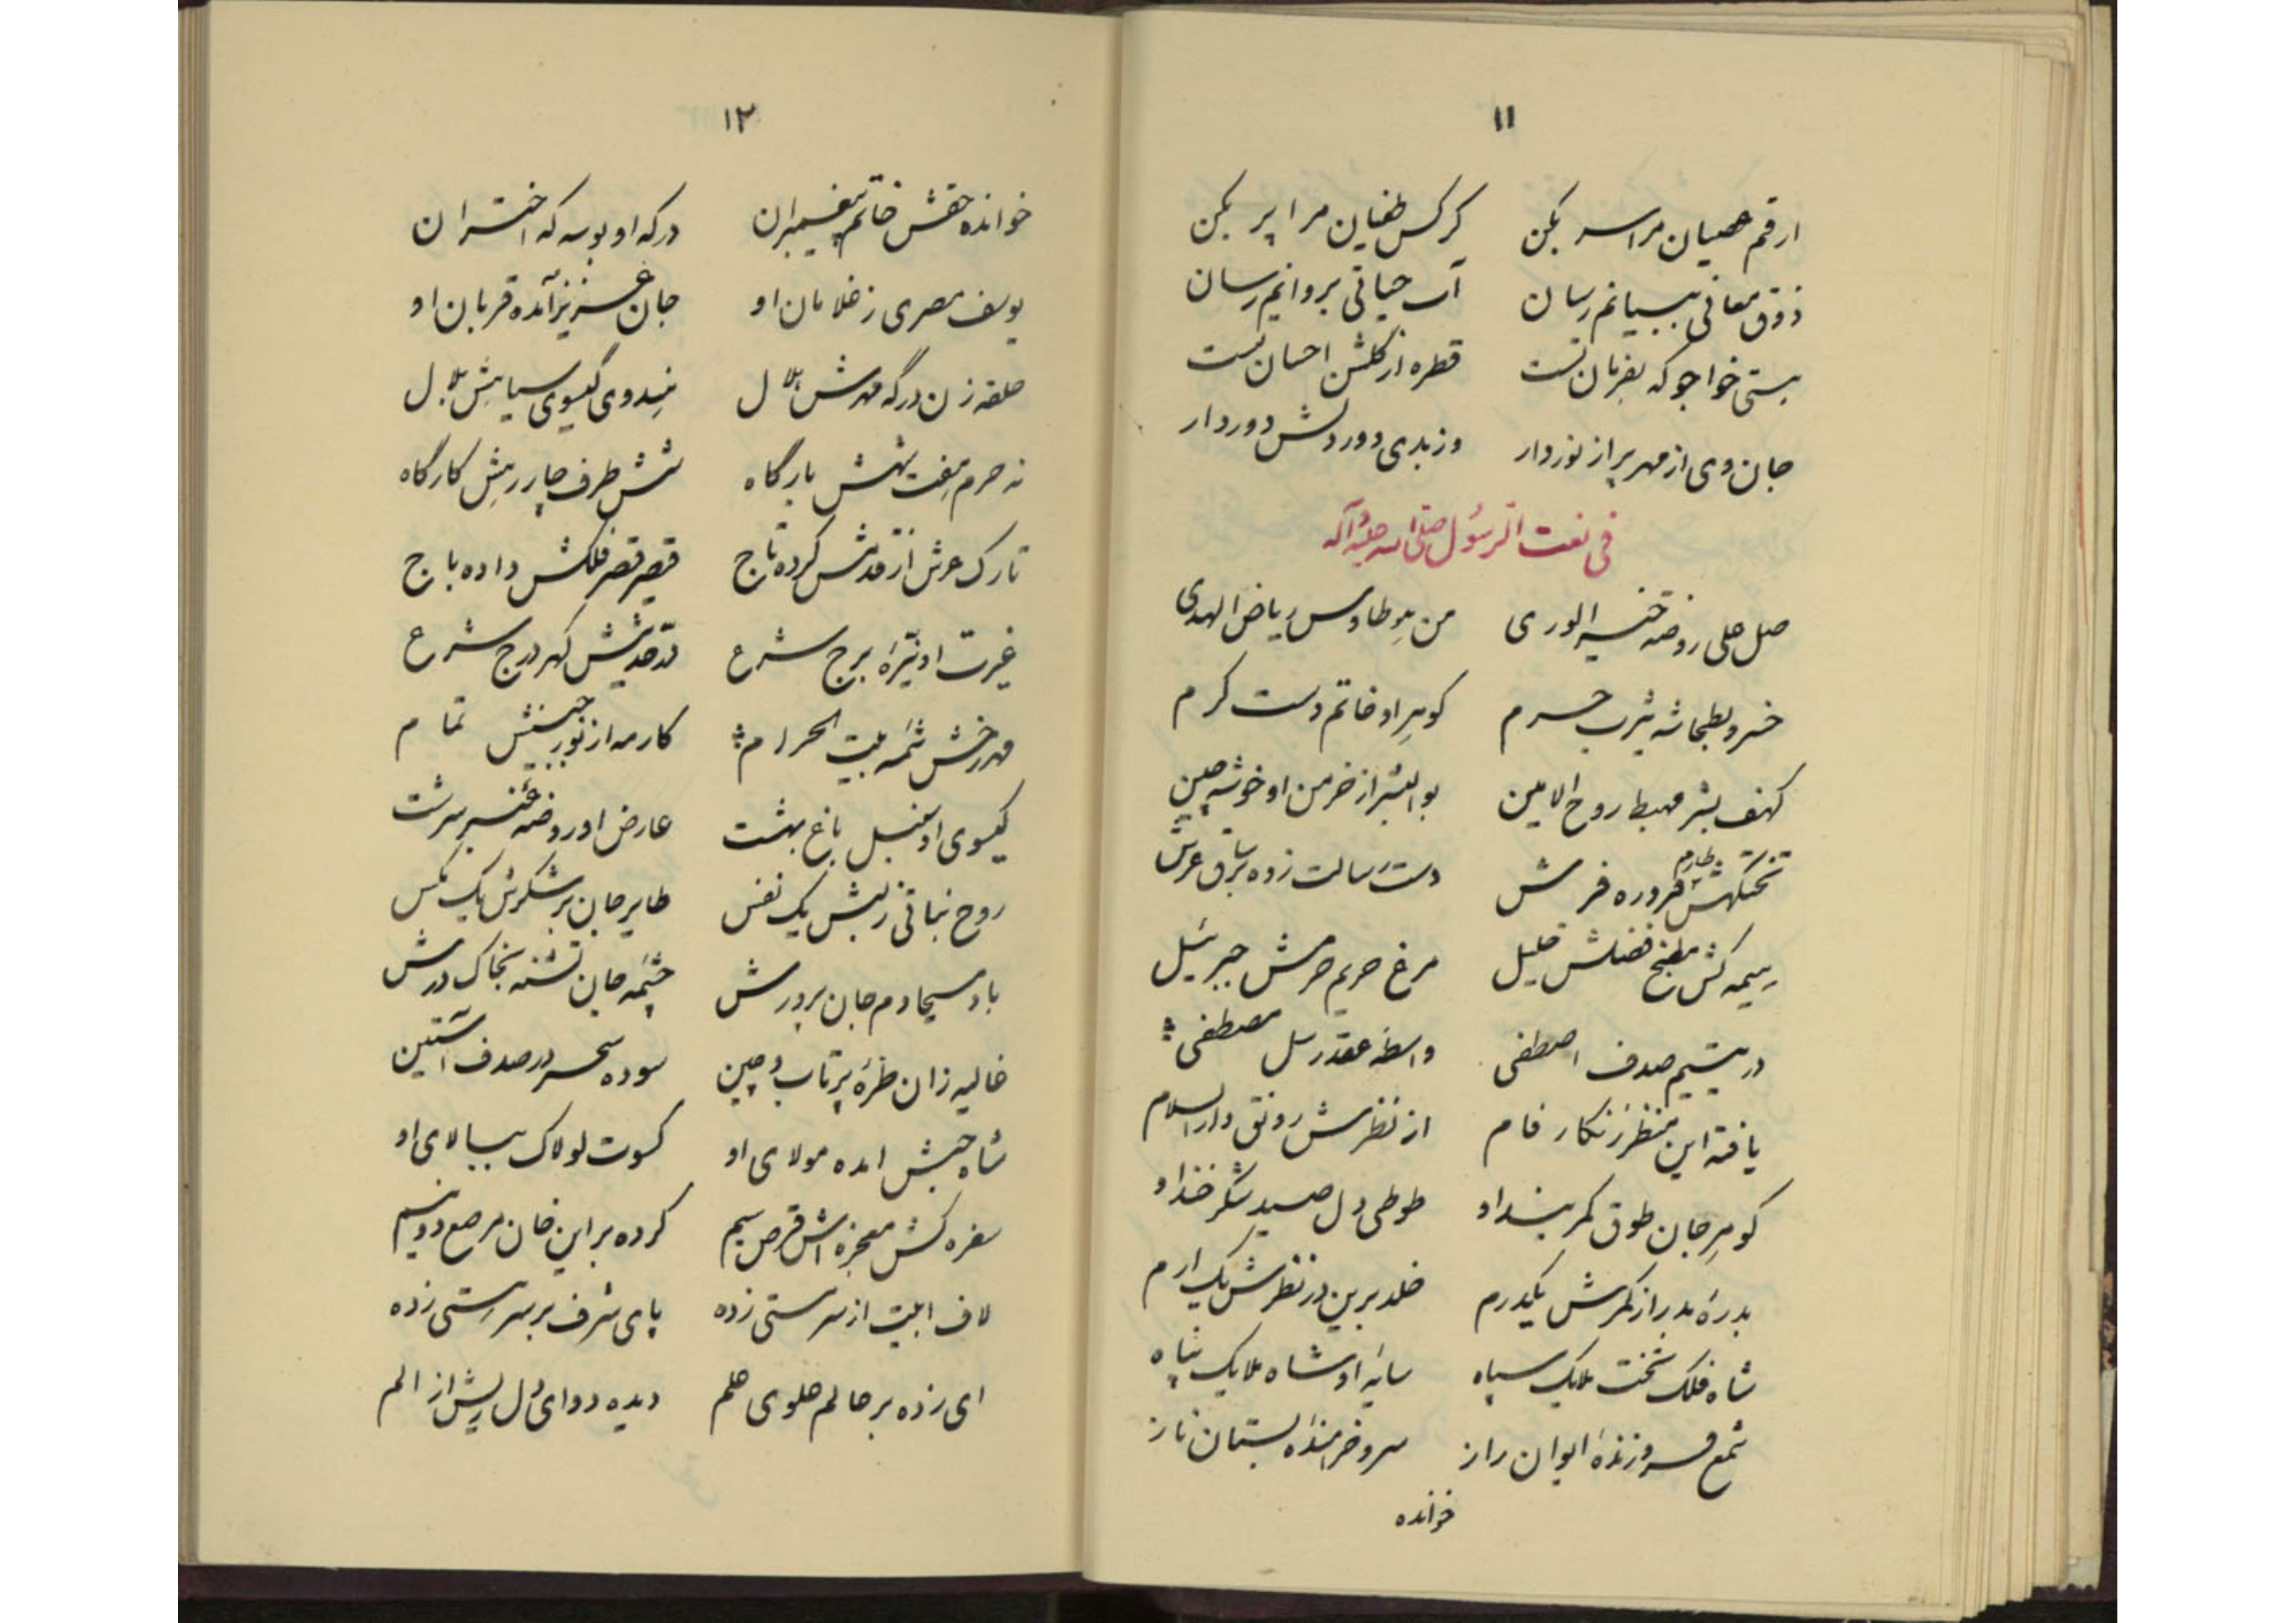 ۱۱
ارقم عصیان مرا سر بکن کرکس طغیان مرا پر بکن
ذوق معانی ببیانم رسان آب حیاتی بروانم رسان
هستی خواجو که بفرمان تست قطره از گلشن احسان تست
جان وی از مهر پر از نور دار وز بدی دور دلش دور دار
فی نعت الرسول صلی الله علیه و آله
صل علی روضه خیر الوری من هو طاوس ریاض الهدی
خسرو بطحا شه یثرب حرم گوهر او خاتم دست کرم
کهف بشر مهبط روح الامین بوالبشر از خرمن او خوشه چین
تختگهش طارم فرش دست رسالت زده بر ساق عرش
هیمه کش مطبخ فضلش خلیل مرغ حریم حرمش جبرئیل
در یتیم صدف اصطفی واسطه عقد رسل مصطفی
یافته این منظر زنگار فام از نظرش رونق دارالسلام
گوهر جان طوق کمربند او طوطی دل صید شکرخند او
بدرهٔ بدر از کمرش یکدرم خلد برین در نظرش یک ارم
شاه فلک تخت ملایک سپاه سایه او شاه ملایک پناه
شمع فروزندهٔ ایوان راز سرو خرامندهٔ بستان ناز
خوانده
۱۲
خوانده حقش خاتم پیغمبران درگه او بوسه که اختران
یوسف مصری ز غلامان او جان عزیز آمده قربان او
حلقه زن درگه مهرش هلال هندوی گیسوی سیاهش بلال
نه حرم هفت بهشش بارگاه شش طرف چار رهش کارگاه
تارک عرش از قدمش کرده تاج قیصر قصر فلکش داده باج
غیرت او نیرهٔ برج شرع در حدیثش گهر درج شرع
مهر رخش شمه بیت الحرام کار مه از نور جبینش تمام
گیسوی او سنبل باغ بهشت عارض او روضه عنبر سرشت
روح نباتی ز لبش یک نفس طایر جان بر شکرش یک مگس
باد مسیحا دم جان پرورش چشمه جان تشنه بخاک درش
غالیه زان طرهٔ پرتاب و چین سوده سحر در صدف آستین
شاه حبش امده مولای او کسوت لولاک ببالای او
سفره کش معجزه اش قرص سیم کرده بر این خان مرصع دو نیم
لاف ابیت از سر مستی زده پای شرف بر سر هستی زده
ای زده بر عالم علوی علم دیده دوای دل ریش از الم